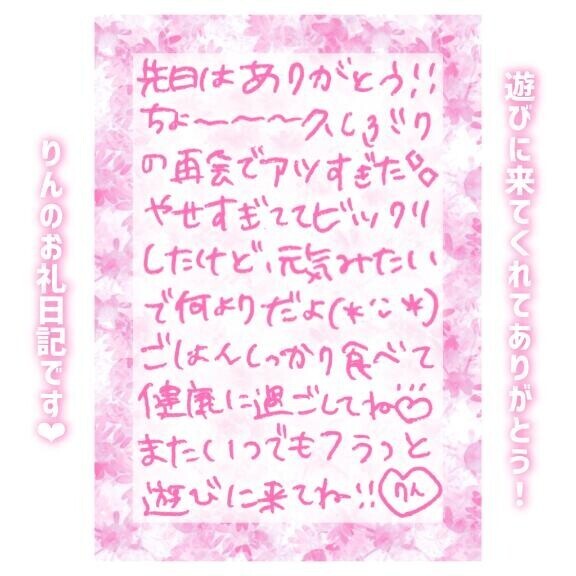 遊びに来てくれてありがとう！
先日はありがとう!!
ちょ〜〜〜〜久しぶり
の再会でアツすぎた
やせすぎててビックリ
したけど、元気みたい
で何よりだよ(*¨*)
ごはんしっかり食べて
健康に過ごしてね♡
またいつでもフラっと
遊びに来てねー!! りん
りんのお礼日記です❤